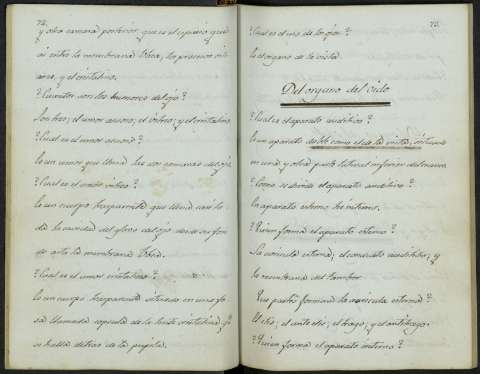 72.
y otra camara posterior, que es el espacio que
ai entre la membrana Ubea, los procesos cili
ares, y el cristalino.
?Cuantos son los humores del ojo?
Son tres; el umor acuoso, el vitreo, y el cristalino.
?Cual es el umor acuoso?
Es un umor que llena las dos camaras del ojo.
?Cual es el umor vitreo?
Es un cuerpo trasparente que llena casi to
da la cavidad del globo del ojo desde su fon
do asta la membrana Ubea.
?Cual es el umor cristalino?
Es un cuerpo trasparente situado en una fo
sa llamada capsula de la lente cristalina, y
se halla detras de la pupila.
73.
?Cual es el uso de los ojos?
Es el organo de la vista.
Del organo del oido
?Cual es el aparato auditivo?
Es un aparato doble como el de la vista, situado
en una y otra parte lateral inferior del craneo.
?Como se divide el aparato auditivo?
En aparato esterno è interno.
?Quien forma el aparato esterno?
La auricula esterna; el conducto auditibo; y
la membrana del tambor.
Que partes forman la auricula esterna?
El elis; el ante elis; el trago; y el antitrago.
?Quien forma el aparato interno?